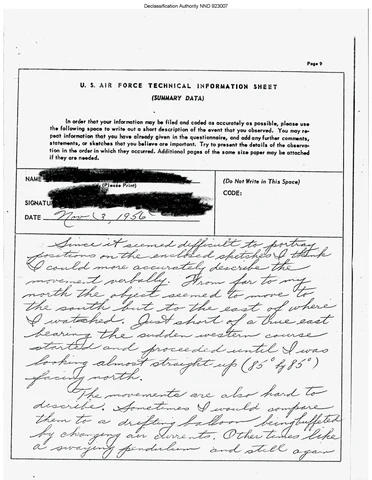 Declassification Authority NND 923007
Page 9
U. S. AIR FORCE TECHNICAL INFORMATION SHEET
(SUMMARY DATA)
In order that your information may be filed and coded as accurately as possible, please use
the following space to write out a short description of the event that you observed. You may re-
peat information that you have already given in the questionnaire, and add any further comments,
statements, or sketches that you believe are important. Try to present the details of the observa-
tion in the order in which they occurred. Additional pages of the same size paper may be attached
if they are needed.
NAME
(Please Print)
(Do Not Write in This Space)
CODE:
SIGNATU
DATE Nov 3, 1956
Since it seemed difficult to portray
positions on the enclosed sketches I think
I could more accurately describe the
movement verbally. From far to my
north the object seemed to move to
the south but to the east of where
I watched. Just short of a true east
bearing the sudden western course
started and proceeded until I was
looking almost straight up (85° by 85°)
facing north.
The movements are also hard to
describe. Sometimes I would compare
them to a drifting balloon being buffeted
by changing air currents. Other times like
a swaying pendulum and still again